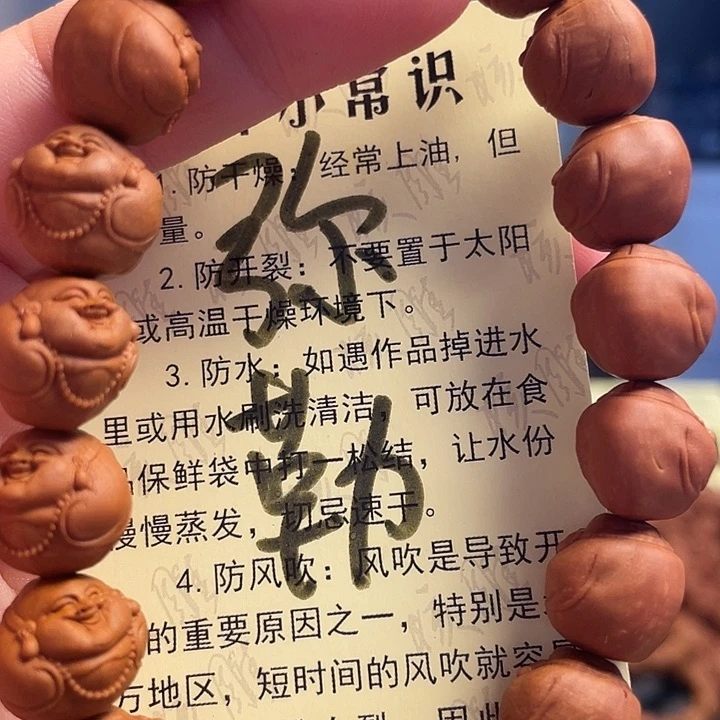 小常识
1. 防干燥：经常上油，但
量。
2. 防开裂：不要置于太阳
或高温干燥环境下。
3. 防水：如遇作品掉进水
里或用水刷洗清洁，可放在食
品保鲜袋中打一松结，让水份
慢慢蒸发，切忌速干。
4. 防风吹：风吹是导致开
的重要原因之一，特别是
方地区，短时间的风吹就容易
弥勒